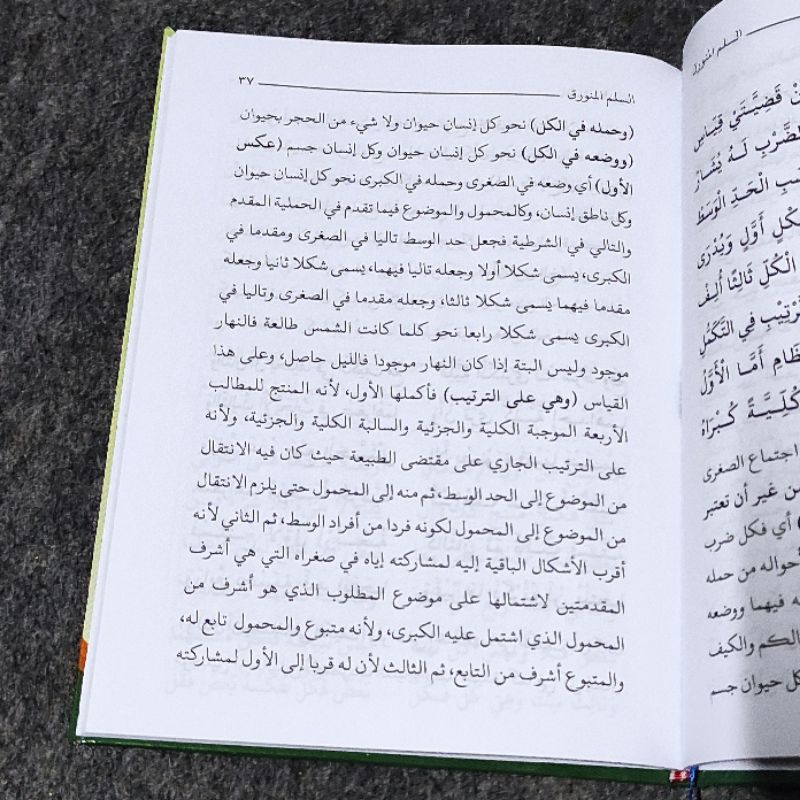 السلم المنورق ٣٧
(وحمله في الكل) نحو كل إنسان حيوان ولا شيء من الحجر بحيوان
(ووضعه في الكل) نحو كل إنسان حيوان وكل إنسان جسم (عكس
الأول) أي وضعه في الصغرى وحمله في الكبرى نحو كل إنسان حيوان
وكل ناطق إنسان، وكالمحمول والموضوع فيما تقدم في الحملية المقدم
والتالي في الشرطية فجعل حد الوسط تاليا في الصغرى ومقدما في
الكبرى، يسمى شكلا أولا وجعله تاليا فيهما، يسمى شكلا ثانيا وجعله
مقدما فيهما يسمى شكلا ثالثا، وجعله مقدما في الصغرى وتاليا في
الكبرى يسمى شكلا رابعا نحو كلما كانت الشمس طالعة فالنهار
موجود وليس البتة إذا كان النهار موجودا فالليل حاصل، وعلى هذا
القياس (وهي على الترتيب) فأكملها الأول، لأنه المنتج للمطالب
الأربعة الموجبة الكلية والجزئية والسالبة الكلية والجزئية، ولأنه
على الترتيب الجاري على مقتضى الطبيعة حيث كان فيه الانتقال
من الموضوع إلى الحد الوسط، ثم منه إلى المحمول حتى يلزم الانتقال
من الموضوع إلى المحمول لكونه فردا من أفراد الوسط، ثم الثاني لأنه
أقرب الأشكال الباقية إليه لمشاركته إياه في صغراه التي هي أشرف
المقدمتين لاشتمالها على موضوع المطلوب الذي هو أشرف من
المحمول الذي اشتمل عليه الكبرى، ولأنه متبوع والمحمول تابع له،
والمتبوع أشرف من التابع، ثم الثالث لأن له قربا إلى الأول لمشاركته
السلم المنورق
قَضِيَّتَيْ قِيَاسِ
لَهُ يُشَارُ
الْحَدِّ الْوَسَطْ
أَوَّلٍ وَيُدْرَى
الْكُلِّ ثَالِثًا أُلِفْ
فِي التَّكَمُّلِ
أَمَّا الْأَوَّلُ
كُلِّيَّةً كُبْرَاهُ
اجتماع الصغرى
من غير أن تعتبر
أي فكل ضرب
أحواله من حمله
فيهما ووضعه
الكم والكيف
كل حيوان جسم